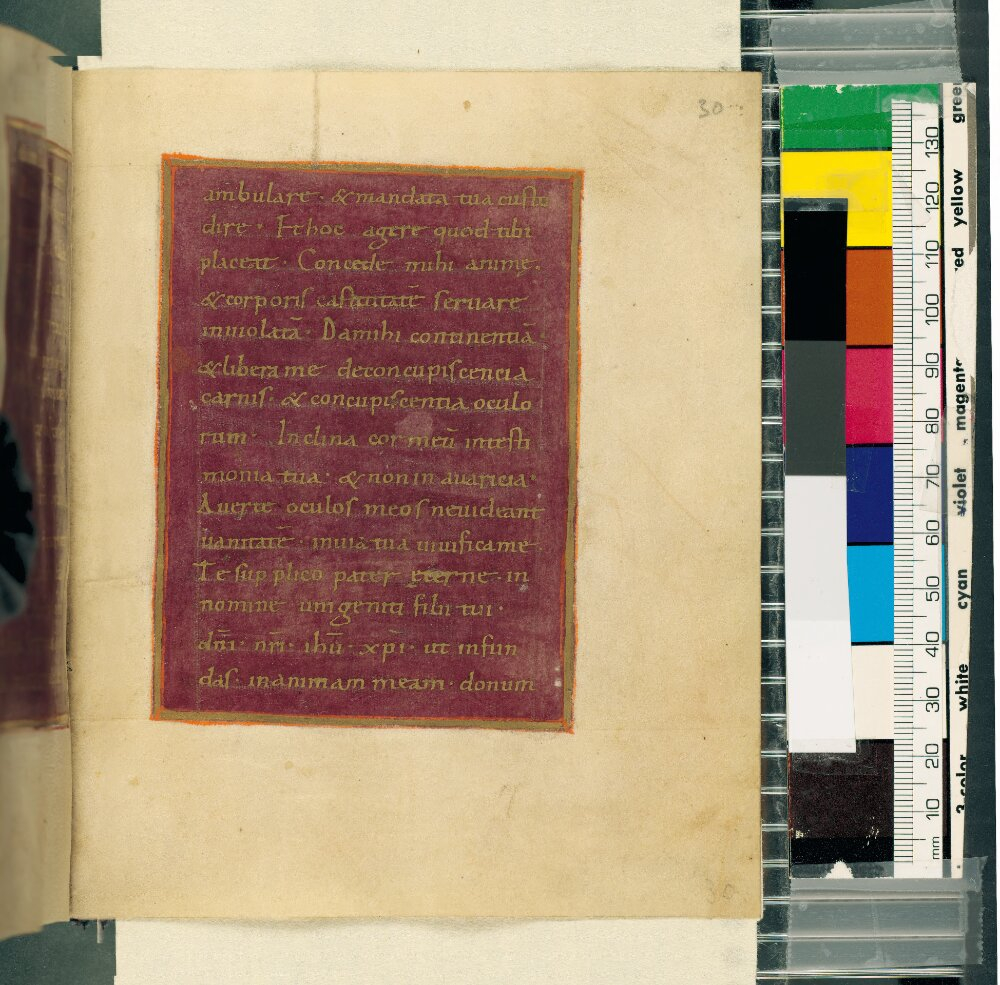 30
ambulare · & mandata tua custo
dire · Et hoc agere quod tibi
placeat · Concede mihi animę ·
& corporis castitatē seruare
inuiolatā · Da mihi continentiā ·
& libera me de concupiscencia
carnis · & concupiscentia oculo
rum · Inclina cor meū in testi
monia tua · & non in auaricia ·
Auerte oculos meos ne uideant
uanitatē · in uia tua uiuifica me ·
Te supplico pater ęterne · in
nomine unigeniti filii tui ·
dn̄i · nr̄i · ihū · xp̄i · ut infun
das · in animam meam · donum
mm 10 20 30 40 50 60 70 80 90 100 110 120 130
3 color white cyan violet magenta red yellow green